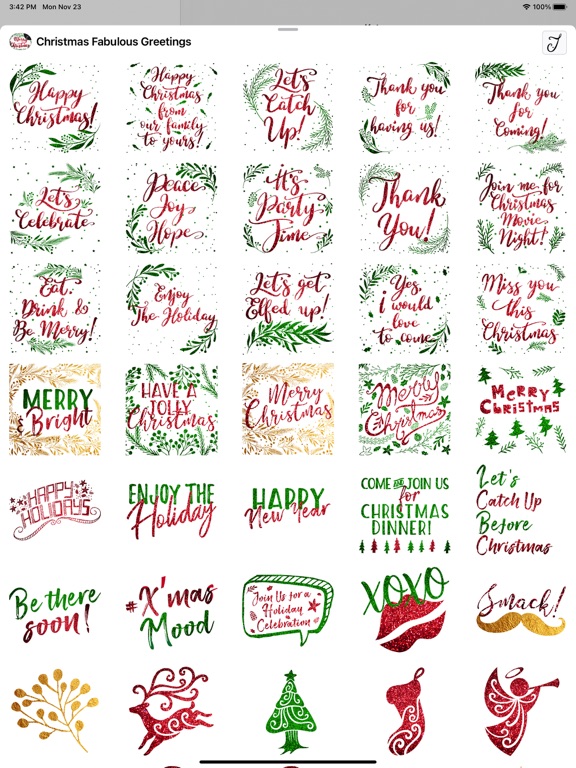 3:42 PM Mon Nov 23
100%
Christmas Fabulous Greetings
Happy
Christmas!
Happy
Christmas
from
our family
to yours!
Let's
Catch
Up!
Thank you
for
having us!
Thank you
for
Coming!
Let's
Celebrate
Peace
Joy
Hope
It's
Party
Time
Thank
You!
Join me for
Christmas
Movie
Night!
Eat,
Drink &
Be Merry!
Enjoy
The Holiday
Let's get
Elfed up!
Yes,
i would
love
to come
Miss you
this
Christmas
MERRY
& Bright
HAVE A
JOLLY
Christmas
Merry
Christmas
Merry
Christmas
MERRY
CHRISTMAS
HAPPY
HOLIDAYS
ENJOY THE
Holiday
HAPPY
New Year
COME AND JOIN US
for
CHRISTMAS
DINNER!
Let's
Catch Up
Before
Christmas
Be there
soon!
#X'mas
Mood
Join Us for a
Holiday
Celebration
XOXO
Smack!